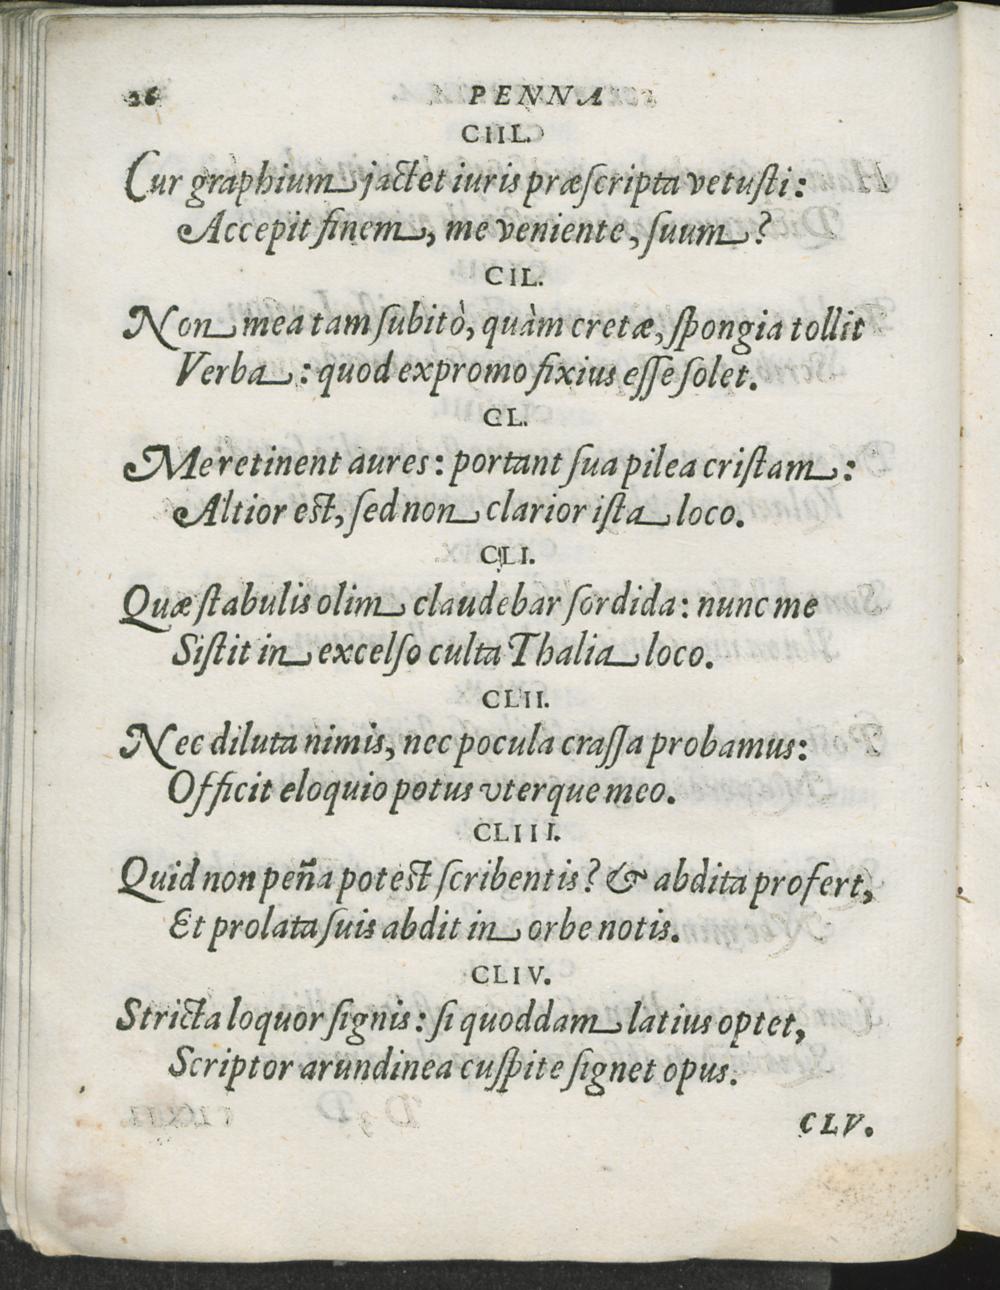 26 PENNA
CIIL.
Cur graphium jactet iuris præſcripta vetuſti:
Accepit finem, me veniente, ſuum?
CIL.
Non mea tam ſubitò, quàm cretæ, ſpongia tollit
Verba: quod expromo fixius eſſe ſolet.
CL.
Me retinent aures: portant ſua pilea criſtam:
Altior eſt, ſed non clarior iſta loco.
CLI.
Quæ ſtabulis olim claudebar ſordida: nunc me
Siſtit in excelſo culta Thalia loco.
CLII.
Nec diluta nimis, nec pocula craſſa probamus:
Officit eloquio potus vterque meo.
CLIII.
Quid non peña poteſt ſcribentis? & abdita profert,
Et prolata ſuis abdit in orbe notis.
CLIV.
Stricta loquor ſignis: ſi quoddam latius optet,
Scriptor arundinea cuſpite ſignet opus.
CLV.